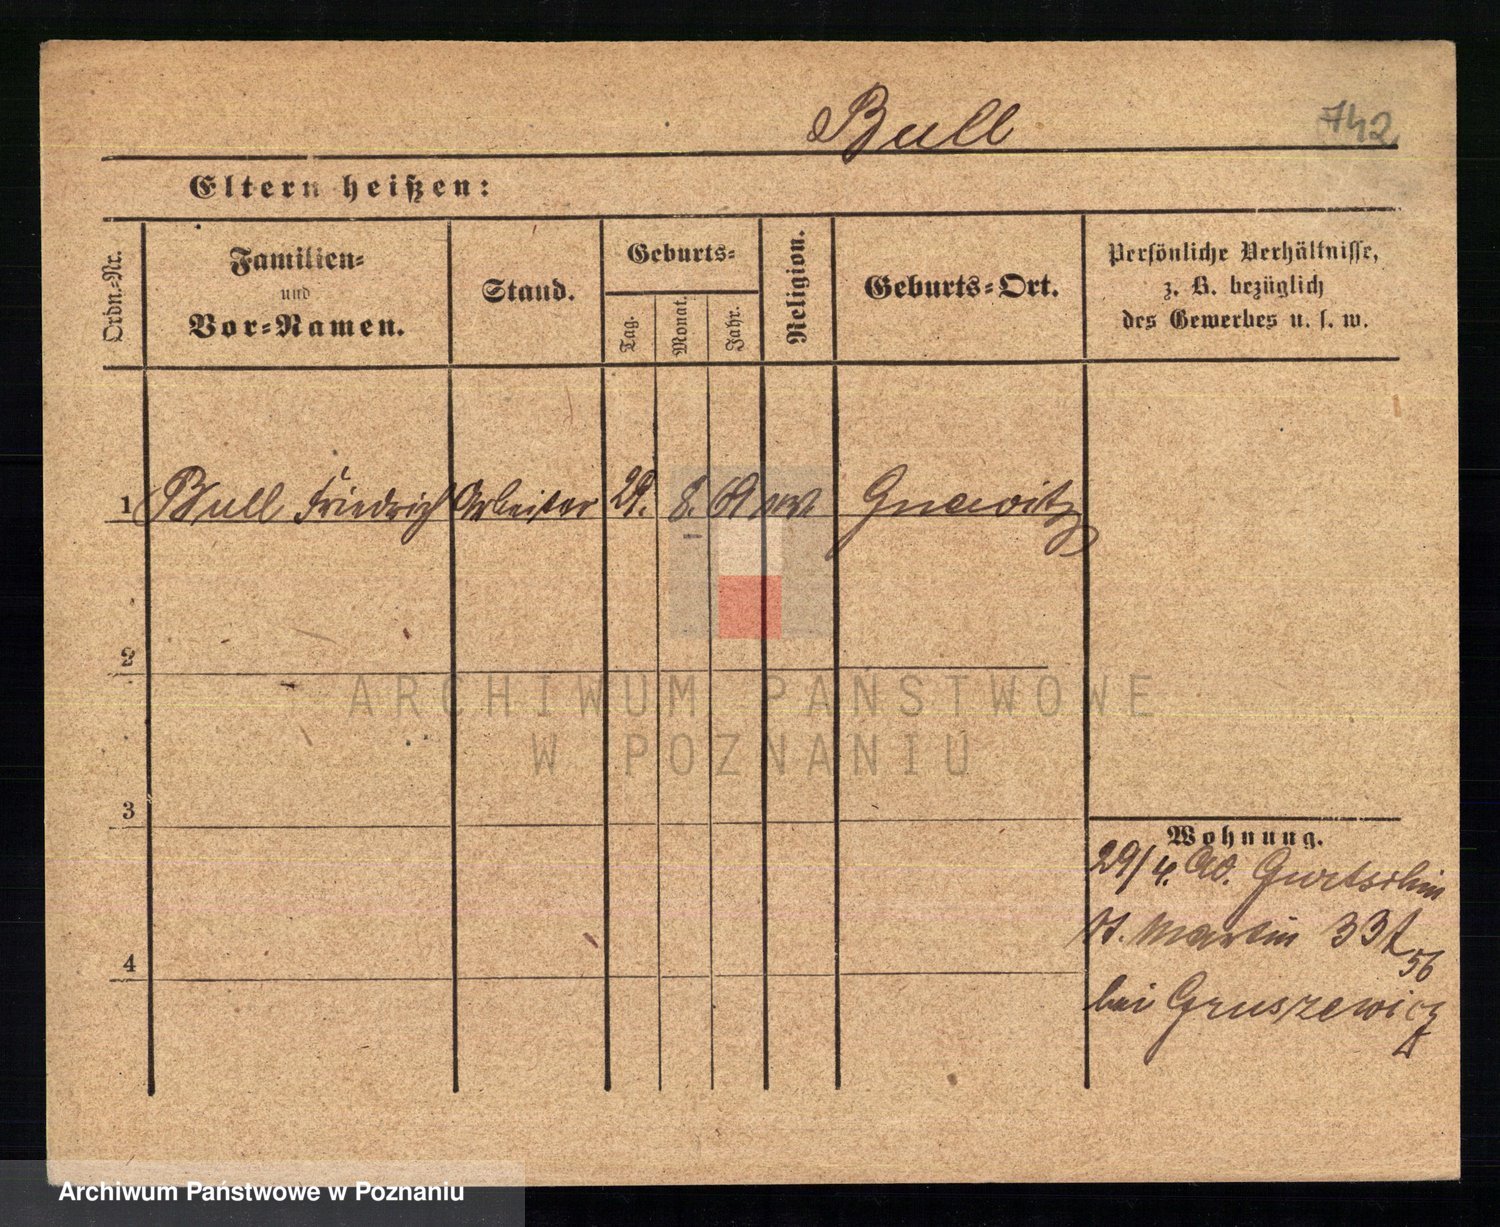 Bull
742
Eltern heißen:
Ordn.-Nr.
Familien-
und
Vor-Namen.
Stand.
Geburts-
Tag.
Monat.
Jahr.
Religion.
Geburts-Ort.
Persönliche Verhältnisse,
z. B. bezüglich
des Gewerbes u. s. w.
1 Bull Friedrich Arbeiter 29. 8. Gnewitz
2
3
4
Wohnung.
29/4. Gurtschin
St. Martin 33
56
bei Gruszewicz
ARCHIWUM PAŃSTWOWE
W POZNANIU
Archiwum Państwowe w Poznaniu